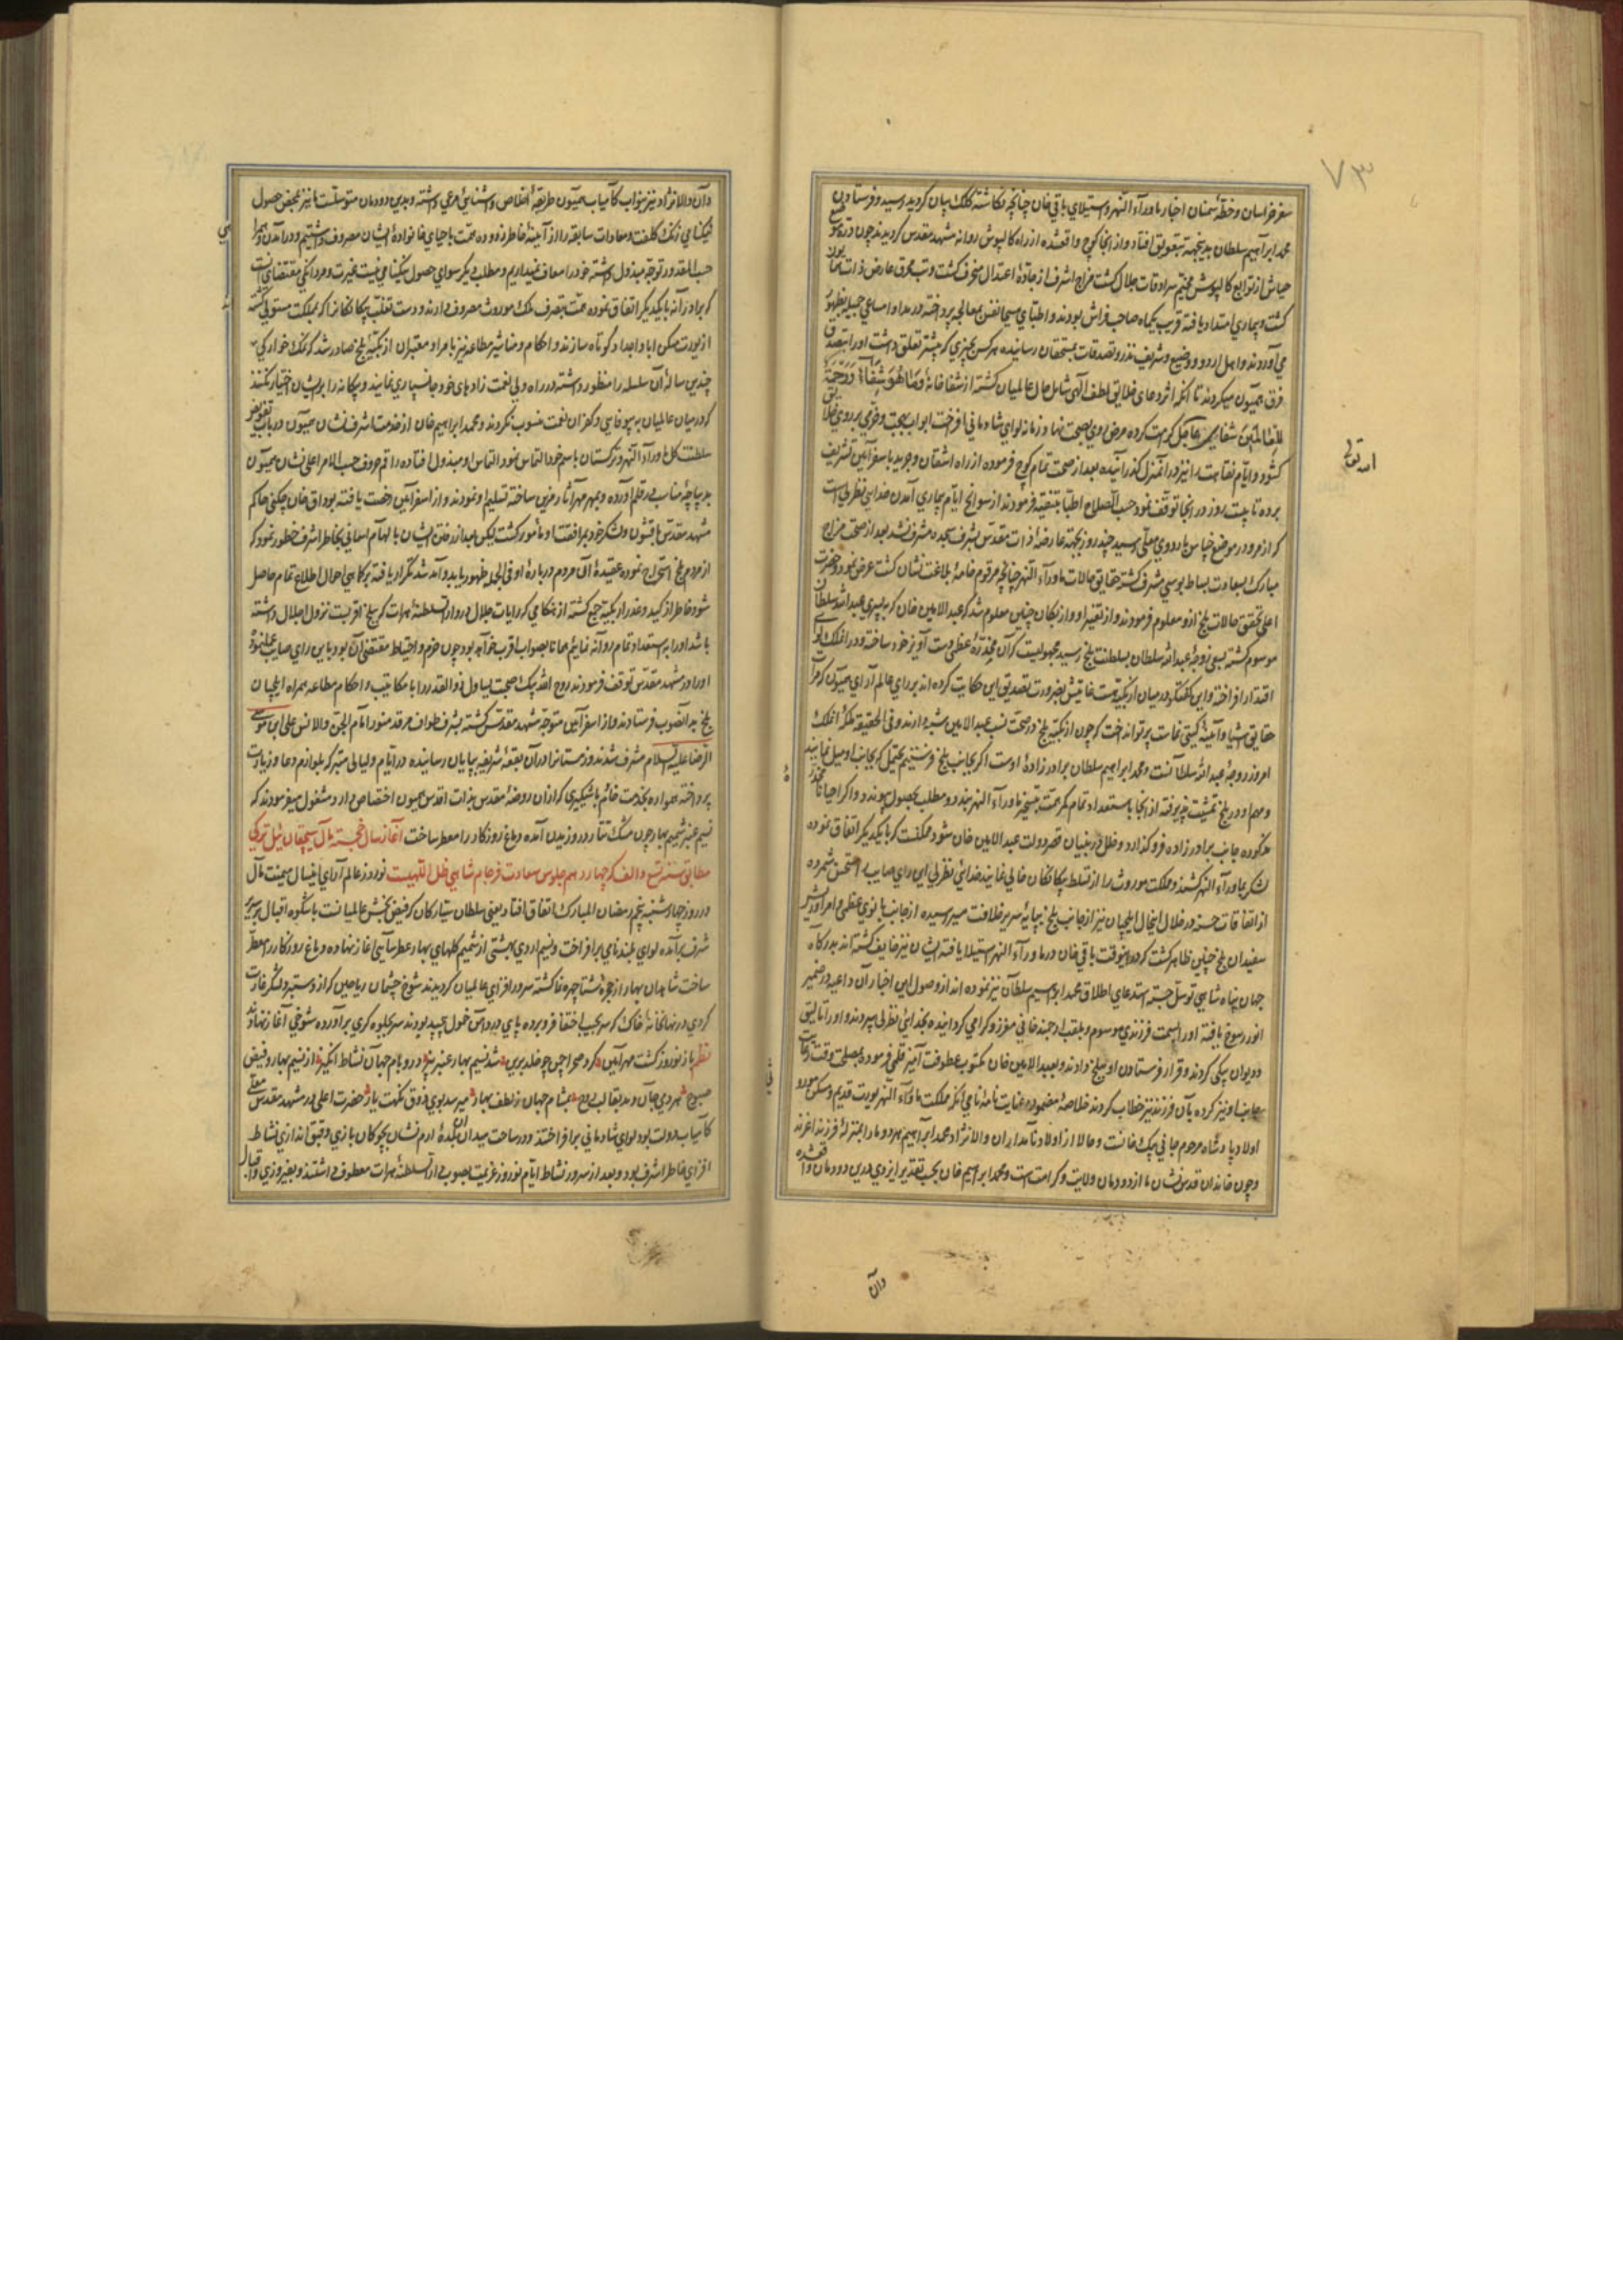 سفر خراسان و خطهٔ سمنان اخبار ماوراء النهر و استیلای باقی خان چنانچه نکاشتهٔ کلک بیان کردید رسید و فرستادن
محمد ابراهیم سلطان بدینجهة بتعویق افتاد و از آنجا کوچ واقع شده از راه کالپوش روانه مشهد مقدس کردیدند چون
از توابع کالپوش مخیم سرادقات جلال کشت مزاج اشرف از جادهٔ اعتدال منحرف کشت و تب محرق عارض ذات
کشت و بیماری امتداد یافته قریب یکماه صاحب فراش بودند و اطبای مسیحا نفس بمعالجه پرداخته در مداوا مساعی جمیله بظهور
می آوردند و اهل اردو و وضیع و شریف نذر و تصدقات بمستحقان رسانیده هر کس بچیزی که بیشتر تعلق داشت او را تصدق
فرق همیون میکردند تا آنکه اثر دعای خلایق لطف الهی شامل حال عالمیان کشته از شفاخانهٔ
للعالمین شفای عاجل کرامت کرده مرض روی بصحت نهاد و زمانه لوای شادمانی افراخت ابواب بهجت و خرمی بر روی
کشود و ایام نقاهت را نیز در آنمنزل کذرانیده بعد از صحت تمام کوچ فرموده از راه اشقان و جوربد باسفراین تشریف
برده تا بیست روز در آنجا توقف نمود حسب الصلاح اطبا تنقیه فرمودند از سوانح ایام بیماری آمدن خدای نظر بی است
که از مرو در موضع خباس باردوی معلی رسید چند روز بجهة عارضهٔ ذات مقدس بشرف سجده مشرف نشد بعد از صحت مزاج
مبارک بسعادت بساط بوسی مشرف کشته حقایق حالات ماوراء النهر چنانچه مرقوم خامهٔ بلاغت نشان کشت عرض نمود و حضرت
اعلی تحقیق حالات بلخ از و معلوم فرمودند و از تقریر او و ازبکان چنین معلوم شد که عبدالامین خان که به پسری عبدالله سلطان
موسوم کشته بسعی زوجهٔ عبدالله سلطان بسلطنت بلخ رسید مجهولیست که آن مخدرهٔ عظمی دست آویز خود ساخته و در آنملک لوای
اقتدار افراخته و این کفتکو در میان ازبکیه هست غایتش بضرورت تصدیق این حکایت کرده اند بر رای عالم آرای همیون که مرآت
حقایق اشیا و آئینهٔ کیتی نماست پرتو انداخت که چون ازبکیه بلخ در صحت نسب عبدالامین شبهه دارند و فی الحقیقه ملکهٔ آنملک
امروز زوجهٔ عبدالله سلطانست و محمد ابراهیم سلطان برادر زادهٔ اوست اکر بجانب بلخ فرستیم یحتمل که بجانب او میل نمایند
و مهم او در بلخ تمشیت پذیرفته از آنجا باستعداد تمام کمر همت بتسخیر ماوراء النهر بندد و مطلب بحصول پیوندد و اکر احیانا
مذکوره جانب برادر زاده فرو کذارد و خلل در بنیان قصر دولت عبدالامین خان شود ممکنست که با یکدیکر اتفاق نموده
لشکر بماوراء النهر کشند و مملکت موروث را از تسلط بیکانکان خالی نمایند خدائی نظر بی این رای صایب را مستحسن شمرده
از اتفاقات حسنه در خلال اینحال ایلچیان نیز از جانب بلخ بپایهٔ سریر خلافت مصیر رسیده از جانب بانوی عظمی و امرا و ریش
سفیدان بلخ چنین ظاهر کشت که در اینوقت باقی خان در ماوراء النهر استیلا یافته ایشان نیز خایف کشته اند بدرکاه
جهان پناه شاهی توسل جسته استدعای اطلاق محمد ابراهیم سلطان نیز نموده اند از وصول این اخبار آن داعیه در ضمیر
انور رسوخ یافته او را بسمت فرزندی موسوم و بلقب ارجمند خانی معزز و کرامی کردانیده بخدائی نظر بی سپردند و او را اتالیق
و دیوان بیکی کردند و قرار فرستادن او ببلخ دادند و بعبدالامین خان مکتوب عطوفت آمیز قلمی فرموده بمصلحت وقت
بجانب او نیز کرده بآن فرزند نیز خطاب کردند خلاصهٔ مضمون عنایت نامهٔ نامی آنکه مملکت ماوراء النهر یورت قدیم و مسکن موروث
اولاد پادشاه مرحوم جانی بیک خانست و حالا از اولاد نامدار ایران والانژاد محمد ابراهیم هر دو ما را بمنزلهٔ فرزند اعز اند
و چون خاندان قدس نشان ما از دودمان ولایت و کرامت است و محمد ابراهیم خان بحسب تقدیر ایزدی درین دودمان
وآن
و آن والانژاد نیز بنواب کامیاب همیون طریقهٔ اخلاص و آشنائی مرعی داشته و بدین دودمان متوسلست ما نیز بمحض حصول
نیکنامی زنک کلفت و معادات سابقه را از آئینهٔ خاطر زدوده همت باحیای خانوادهٔ ایشان مصروف داشتیم و در آمدن
حسب المقدور توجه مبذول داشته خود را معاف نمیداریم و مطلب دیکر سوای حصول نیکنامی نیست غیرت و مردانکی مقتضای آنست
که برادرانه با یکدیکر اتفاق نموده همت بتصرف ملک موروث مصروف دارند و دست تغلب بیکانکانرا که بمملکت مستولی کشته
از یورت مسکن ابا و اجداد کوتاه سازند و احکام و مناشیر مطاعه نیز بامرا و معتبران ازبکیهٔ بلخ صادر شد که نمک خوارکی
چندین سالهٔ آن سلسله را منظور داشته در راه ولی نعمت زادهای خود جانسپاری نمایند و بیکانه را بر ایشان اختیار نکنند
که در میان عالمیان به بیوفائی و کفران نعمت منسوب نکردند و محمد ابراهیم خان از خدمت اشرف نشان همیون در باب
سلطنت کل ماوراء النهر و ترکستان باسم خود التماس نمود التماس او مبذول افتاده راقم حروف حسب الامر اعلی نشان همیون
بدیباچهٔ مناسب در قلم آورده و بمهر مهر آثار مزین ساخته تسلیم او نمودند و از اسفراین رخصت یافته بوداق خان چکنی حاکم
مشهد مقدس با قشون و لشکر خود بمرافقت او مامور کشت لیکن بعد از رفتن ایشان بالهام آسمانی بخاطر اشرف خطور نمود که
از مردم بلخ استخراج نموده عقیدهٔ آن مردم دربارهٔ او فی الجمله ظهور یابد و آمد شد مکرر یافته بر کماهی احوال اطلاع تمام حاصل
شود خاطر از کید و غدر ازبکیه جمع کشته از هنکامی که رایات جلال در دارالسلطنهٔ هرات که ببلخ اقربست نزول اجلال داشته
باشد او را باستعداد تمام روانه نمائیم همانا بصواب اقرب خواهد بود چون حزم و احتیاط مقتضی آن بود باین رای صایب
او را در مشهد مقدس توقف فرمودند روح الله بیک صحبت یساول ذوالقدر را با مکاتیب و احکام مطاعه همراه ایلچیان
بلخ بدانصوب فرستادند و از اسفراین متوجه مشهد مقدس کشته بشرف طواف مرقد منور امام الجن و الانس علی ابن موسی
الرضا علیه السلام مشرف شدند و زمستانرا در آن بقعهٔ شریفه بپایان رسانیده در ایام و لیالی متبرکه بلوازم دعا و زیارت
پرداخته همواره بخدمت خادم باشیکری که از آن روضهٔ مقدس بذات اقدس همیون اختصاص دارد مشغول میفرمودند که
نسیم عنبر شمیم بهار چون مشک تتار در وزیدن آمده دماغ روزکار را معطر ساخت آغاز سال خجسته مآل سیچقان ئیل ترکی
مطابق سنه تسع و الف که چهاردهم جلوس سعادت فرجام شاهی ظل اللهیست نوروز عالم آرای اینسال میمنت مآل
در روز چهارشنبه پنجم رمضان المبارک اتفاق افتاد یعنی سلطان سیارکان که فیض بخش عالمیانست با شکوه اقبال بر سریر
شرف برآمده لوای بلند نامی برافراخت و نسیم اردی بهشتی از شمیم کلهای بهار عطرسائی آغاز نهاده دماغ روزکار را معطر
ساخت شاهدان بهار از حجرهٔ شتا چهره نما کشته سرور افزای عالمیان کردیدند شوخ چشمان ریاحین که از دستبرد لشکر غارت
کر دی در نهانخانهٔ خاک که سر بجیب اختفا فرو برده پای در دامن خمول پیچیده بودند سر بجلوه کری برآورده شوخی آغاز نهادند
نظم باز نوروز کشت مهرآیین کرد صحرا چمن چو خلد برین شد نسیم بهار عنبر بیز در و بام جهان نشاط انکیز از نسیم بهار و فیض
صبوح شهر دی جان دمد بقالب روح بمشام جهان ز لطف بهار میرسد بوی ذوق نکهت یار حضرت اعلی در مشهد مقدس معلی
کامیاب دولت بود لوای شادمانی برافراختند و در ساحت میدان آن بلدهٔ ارم نشان بچوکان بازی و قبق اندازی نشاط
افزای خاطر اشرف بود و بعد از سرور نشاط ایام نوروز عزیمت بصوب دارالسلطنهٔ هرات معطوف داشتند و بفیروزی و اقبال